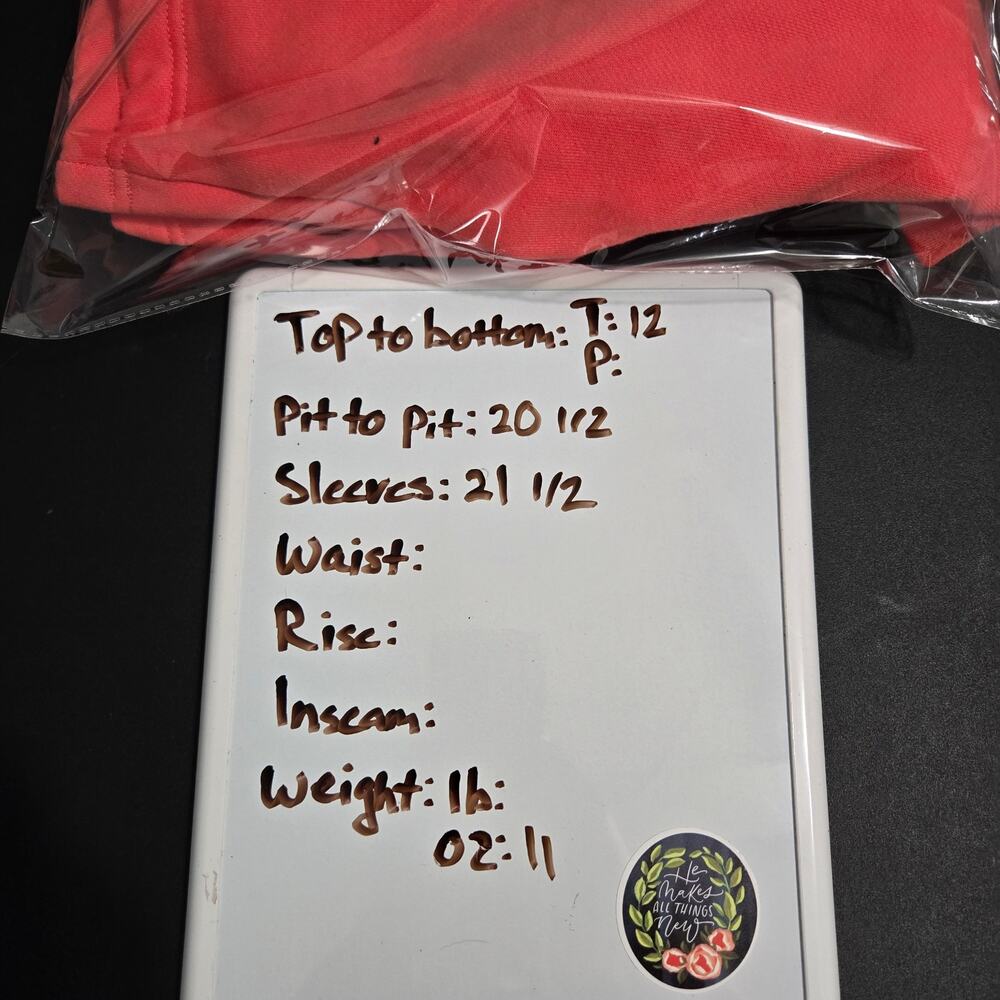 Top to bottom: T: 12
P:
Pit to pit: 20 1/2
Sleeves: 21 1/2
Waist:
Rise:
Inseam:
Weight: lb:
oz: 11
He
Makes
ALL THINGS
New